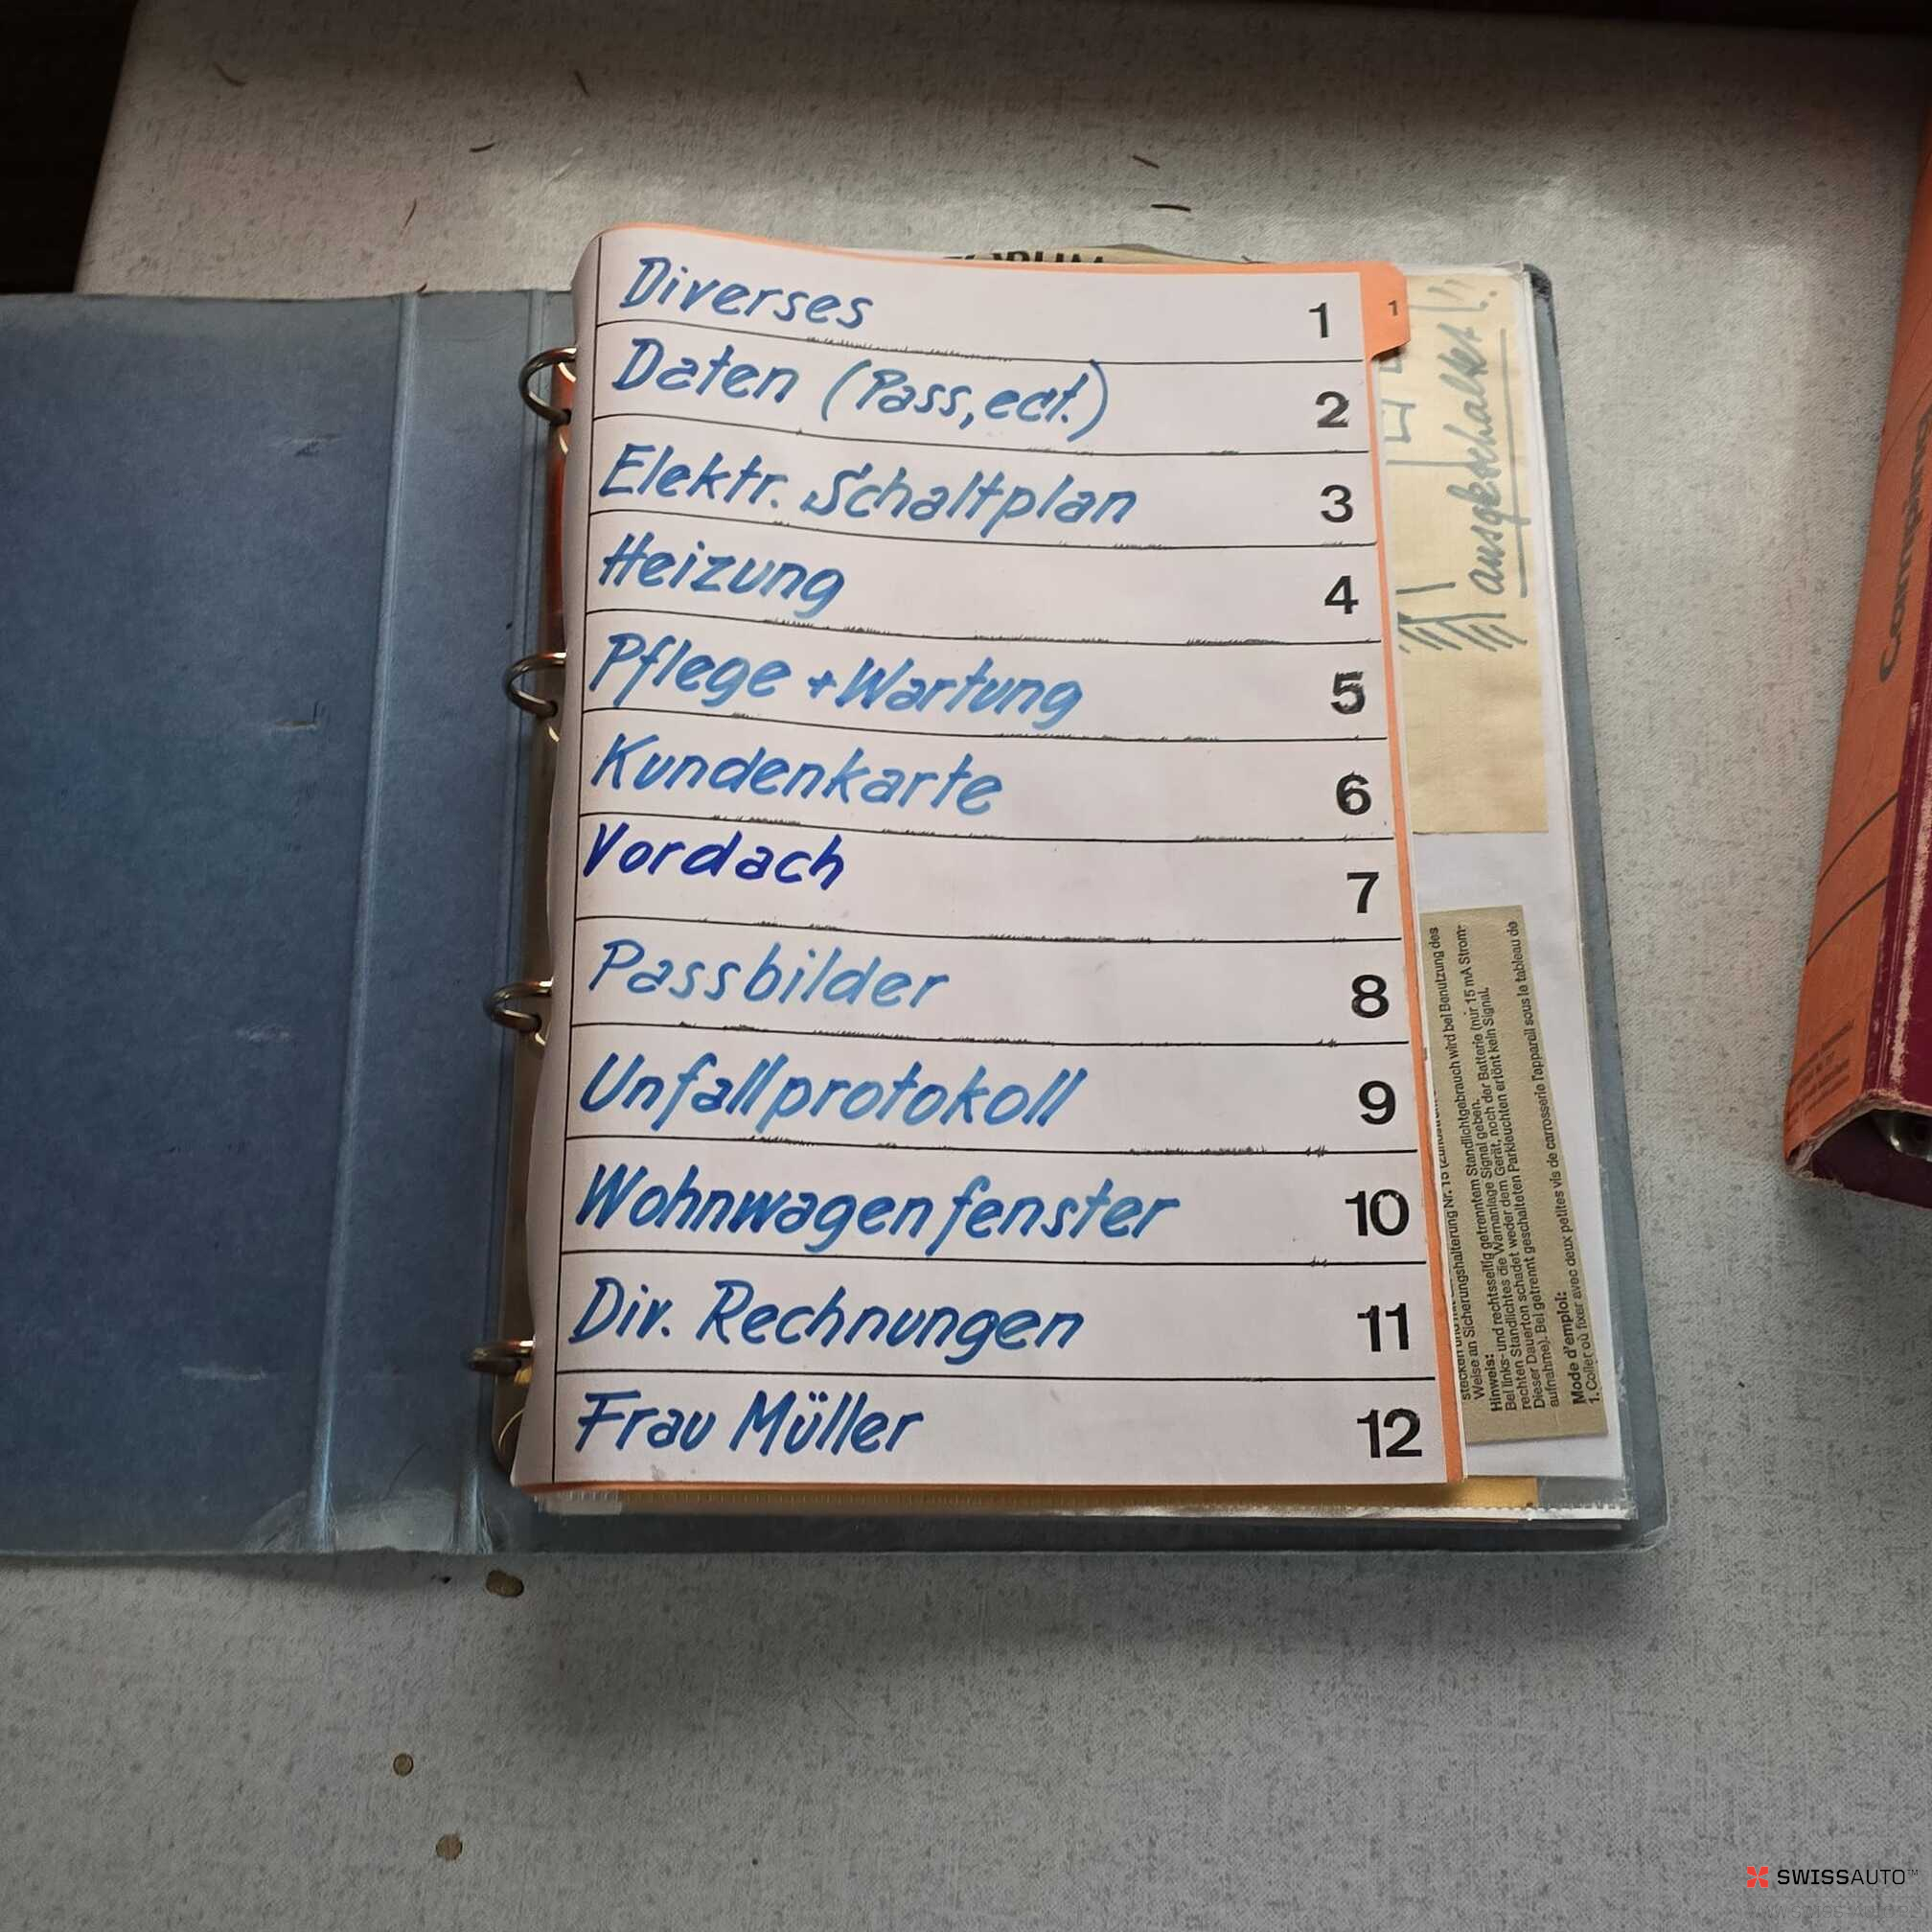 Diverses 1
1
Daten (Pass, ect.) 2
Elektr. Schaltplan 3
Heizung 4
Pflege + Wartung 5
Kundenkarte 6
Vordach 7
Passbilder 8
Unfallprotokoll 9
Wohnwagenfenster 10
Div. Rechnungen 11
Frau Müller 12
Weise an Sicherungshalterung Nr. 15
Standlichtgebrauch wird bei Benutzung des
Hinweis:
Bei links- und rechtsseitig getrenntem Standlicht
die Warnanlage Signal geben.
rechten Standlichtes
schadet weder dem Gerät, noch der Batterie (nur 15 mA Strom-
Dieser Dauerton
aufnahme). Bei getrennt geschalteten Parkleuchten ertönt kein Signal.
Mode d'emploi:
1. Coller où fixer avec deux petites vis de carrosserie l'appareil sous le tableau de
SWISSAUTO™